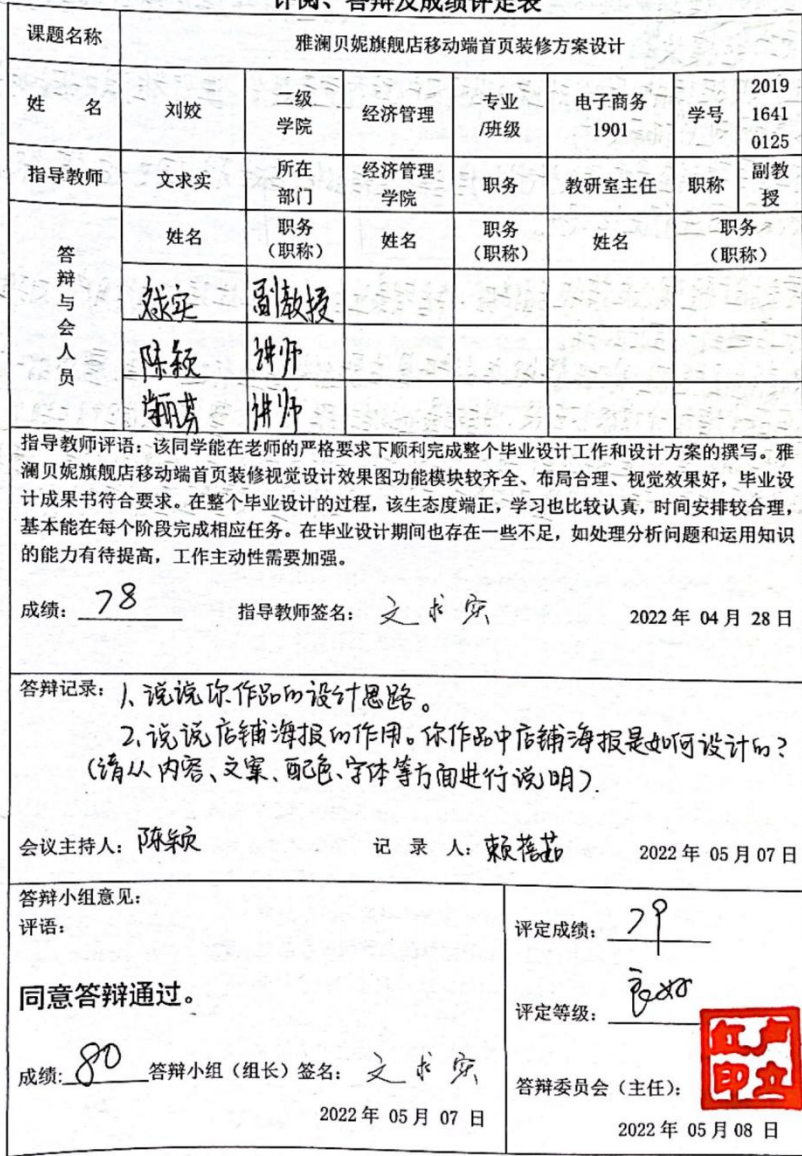 评阅、答辩及成绩评定表
课题名称 雅澜贝妮旗舰店移动端首页装修方案设计
姓 名 刘姣 二级学院 经济管理 专业/班级 电子商务1901 学号 201916410125
指导教师 文求实 所在部门 经济管理学院 职务 教研室主任 职称 副教授
答辩与会人员 姓名 职务（职称） 姓名 职务（职称） 姓名 职务（职称）
文求实 副教授
陈颖 讲师
讲师
指导教师评语：该同学能在老师的严格要求下顺利完成整个毕业设计工作和设计方案的撰写。雅
澜贝妮旗舰店移动端首页装修视觉设计效果图功能模块较齐全、布局合理、视觉效果好，毕业设
计成果书符合要求。在整个毕业设计的过程，该生态度端正，学习也比较认真，时间安排较合理，
基本能在每个阶段完成相应任务。在毕业设计期间也存在一些不足，如处理分析问题和运用知识
的能力有待提高，工作主动性需要加强。
成绩：78 指导教师签名：文求实 2022年 04月 28日
答辩记录：1、说说你作品的设计思路。
2、说说店铺海报的作用。你作品中店铺海报是如何设计的？
（请从内容、文案、配色、字体等方面进行说明）.
会议主持人：陈颖 记 录 人：赖蓓茹 2022年 05月 07日
答辩小组意见：
评语：
同意答辩通过。
成绩:80 答辩小组（组长）签名：文求实
2022年 05月 07 日
评定成绩：79
评定等级：良好
答辩委员会（主任）：
卢立红印
2022年 05月 08 日